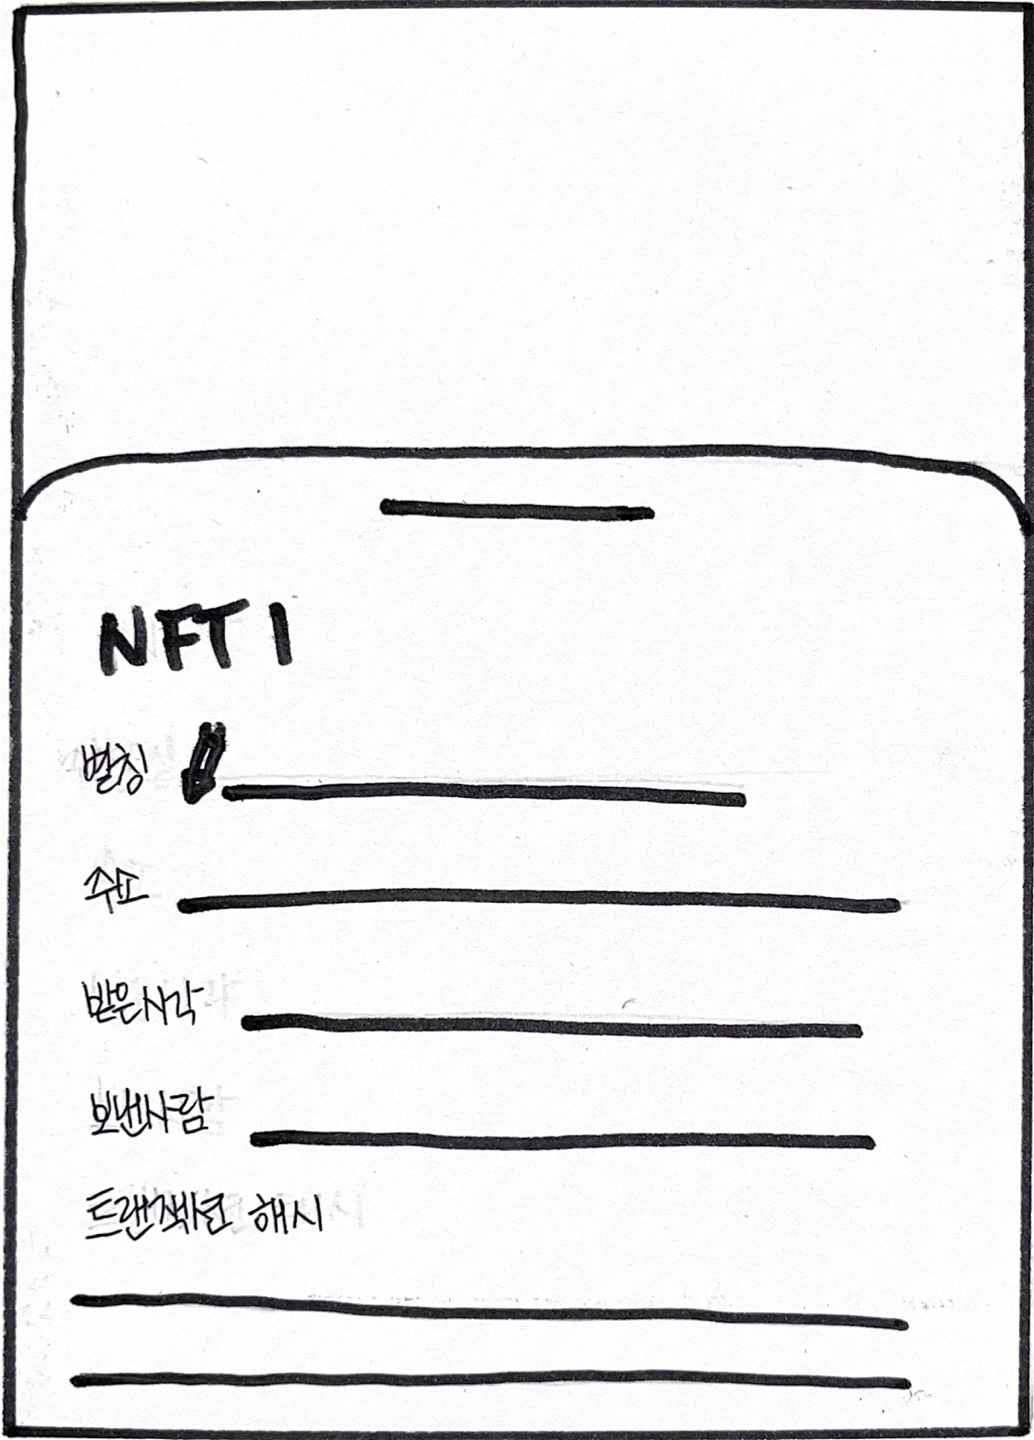 NFT 1
별칭
주소
받은시각
보낸사람
트랜잭션 해시